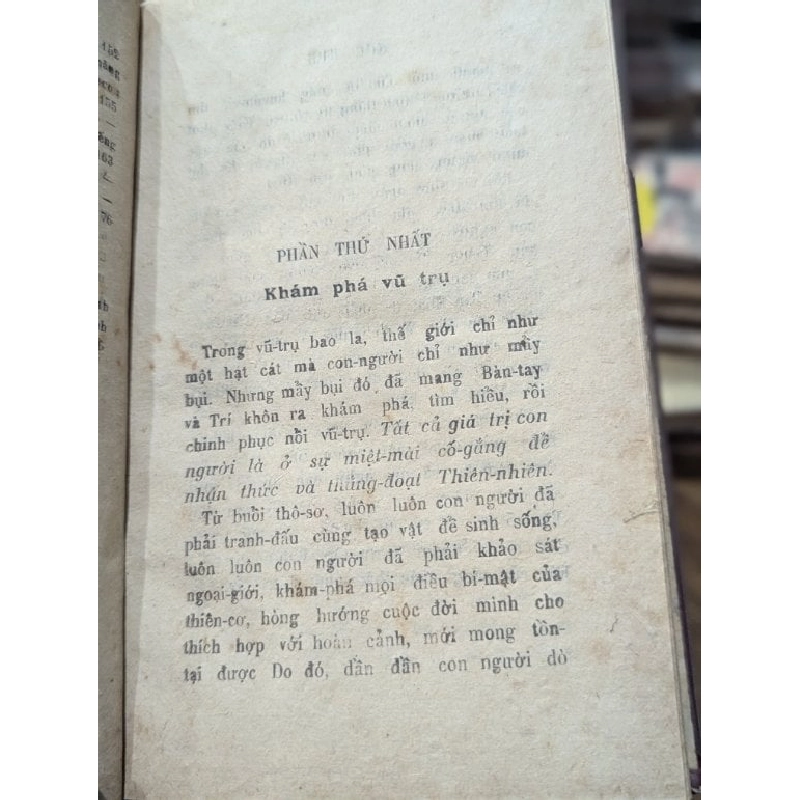 152
155
163
76
PHẦN THỨ NHẤT
Khám phá vũ trụ
Trong vũ-trụ bao la, thế giới chỉ như
một hạt cát mà con-người chỉ như mấy
bụi. Nhưng mấy bụi đó đã mang Bàn-tay
và Trí khôn ra khám phá, tìm hiểu, rồi
chinh phục nổi vũ-trụ. Tất cả giá trị con
người là ở sự miệt-mài cố-gắng để
nhận thức và thắng-đoạt Thiên-nhiên.
Từ buổi thô-sơ, luôn luôn con người đã
phải tranh-đấu cùng tạo vật để sinh sống,
luôn luôn con người đã phải khảo sát
ngoại-giới, khám-phá mọi điều bí-mật của
thiên-cơ, hòng hướng cuộc đời mình cho
thích hợp với hoàn cảnh, mới mong tồn-
tại được Do đó, dần dần con người dò